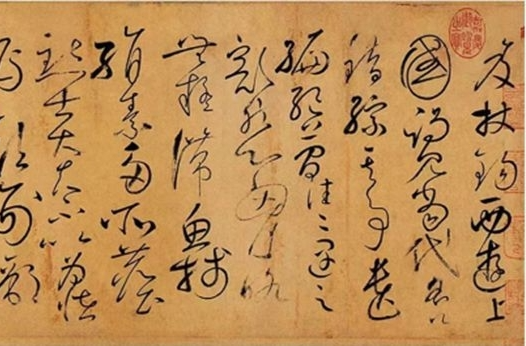 笈杖錫西遊上
國謁見當代名公
錯綜其事遺
編絕簡往往遇之
豁然心胸略
無疑滯魚牋
絹素多所塵
點士大夫不以為怪